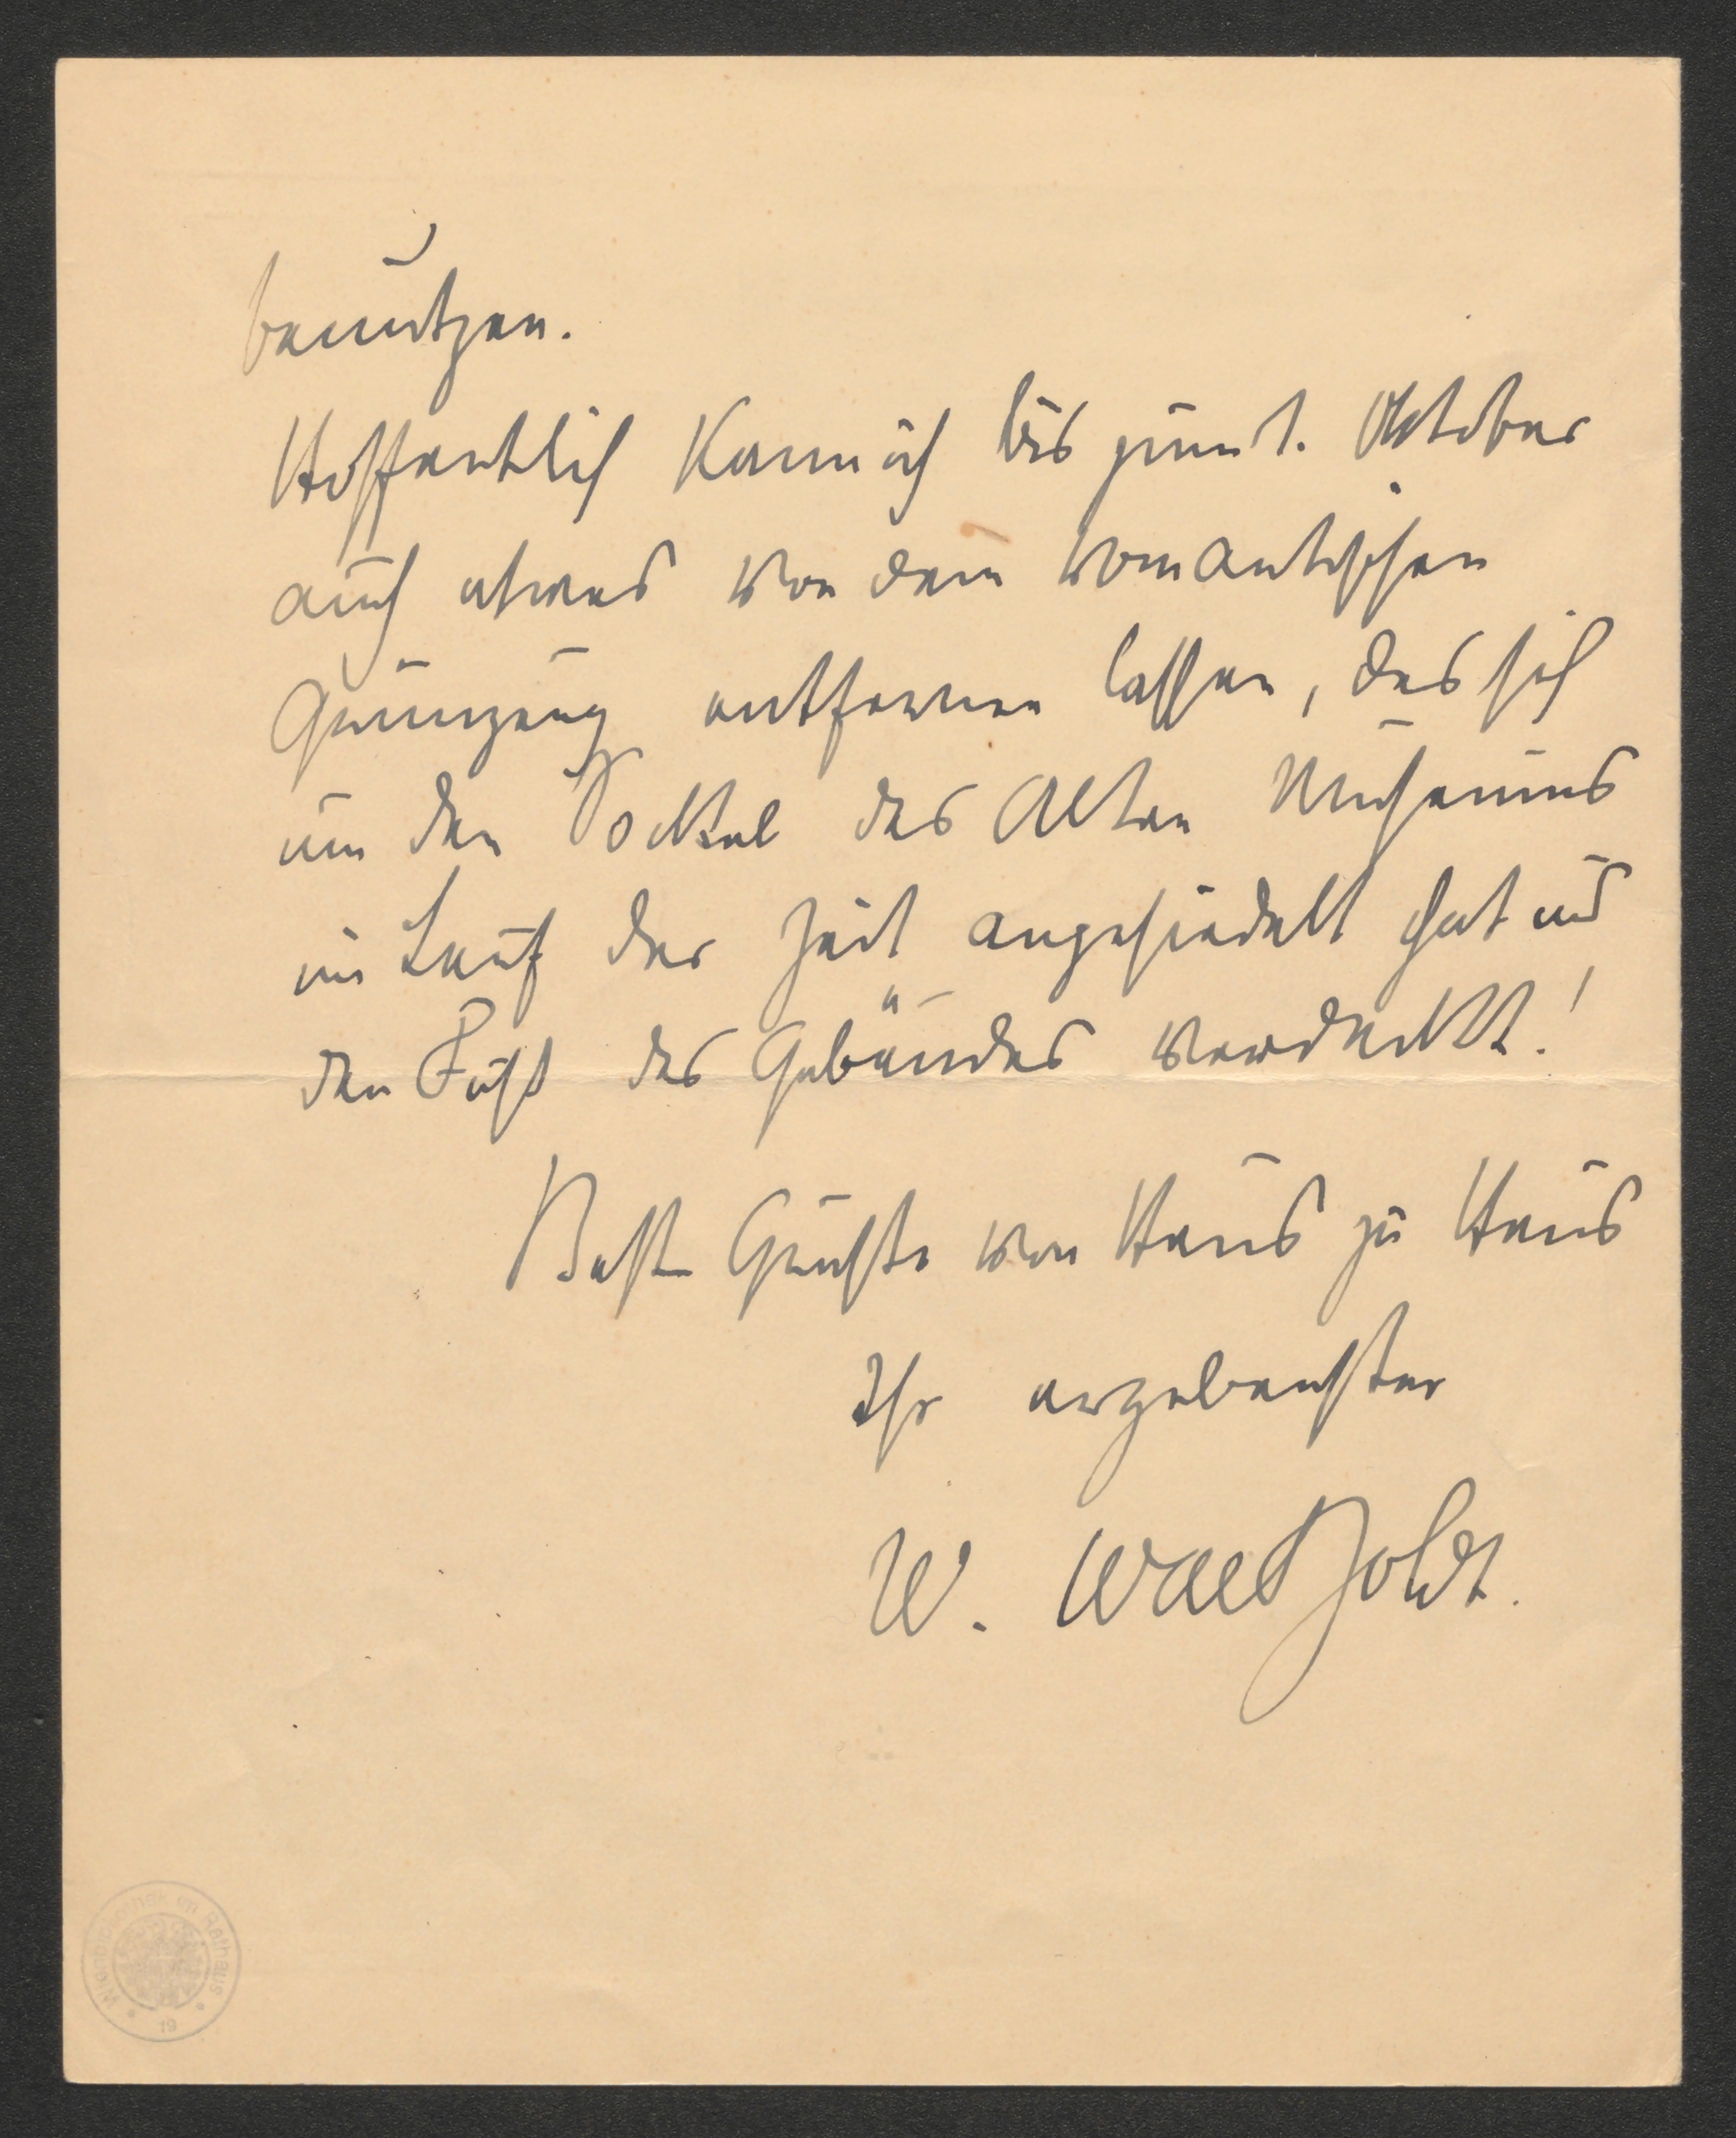 benutzen.
Hoffentlich kann ich bis zum 1. Oktober
auch etwas von dem romantischen
Grünzeug entfernen lassen, das sich
um den Sockel des Alten Museums
im Lauf der Zeit angesiedelt hat und
den Fuß des Gebäudes verdeckt!
Beste Grüße von Haus zu Haus
Ihr ergebenster
W. Waetzoldt.
Wienbibliothek im Rathaus
19